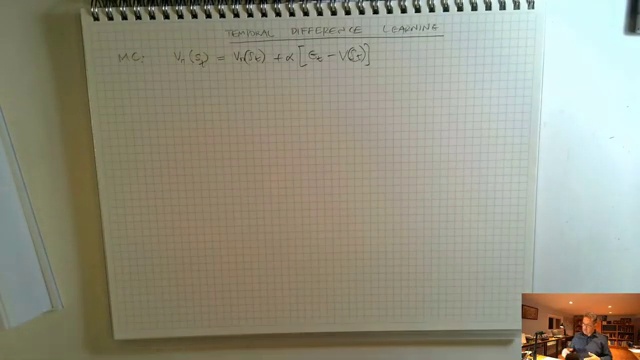 TEMPORAL DIFFERENCE LEARNING
MC: Vπ(St) = Vπ(St) + α [Gt − V(St)]